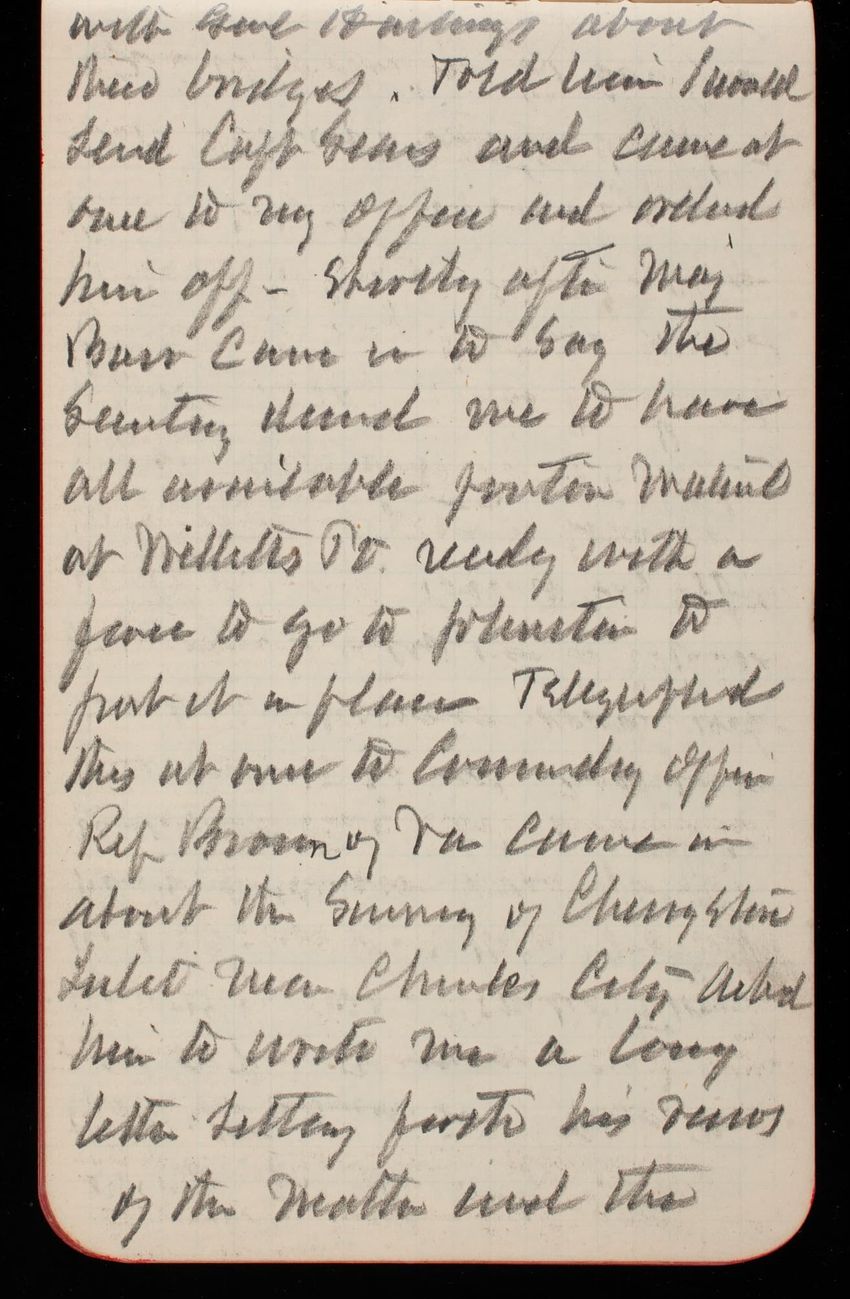 with Genl Hastings about
their bridges. Told him I would
send Capt Sears and came at
once to my office and ordered
him off - Shortly after Maj
Barr came in to say the
Secretary desired me to have
all available ponton material
at Willetts Pt. ready with a
force to go to Johnston to
put it in place Telegraphed
this at once to Commdg officer
Rep Brown of Va came in
about the Survey of Cherrystone
Inlet near Charles City Asked
him to write me a long
letter setting forth his views
of the matter and the